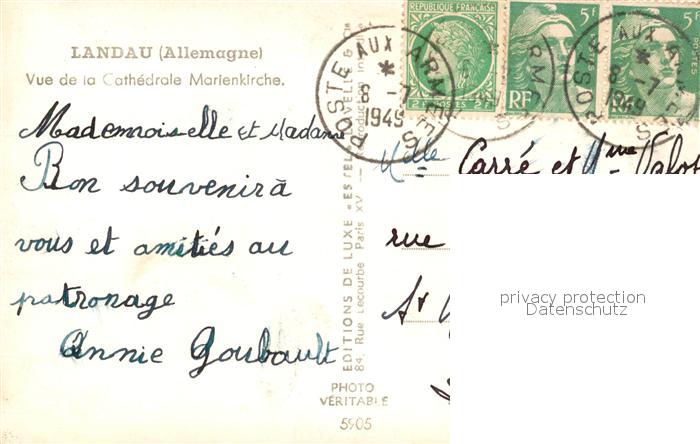 LANDAU (Allemagne)
Vue de la Cathédrale Marienkirche.
Mademoiselle et Madame
Bon souvenir à
vous et amitiés au
patronage
Annie Goubault
EDITIONS DE LUXE « ESTEL »
84, Rue Lecourbe Paris XV
PHOTO
VÉRITABLE
5905
RÉPUBLIQUE FRANÇAISE
2F POSTES 2F
RF
5F
5F
POSTE AUX ARMÉES
8 -7
1949
POSTE AUX ARMÉES
8 -7
1949
Melle Carré et Mme
rue
St
privacy protection
Datenschutz